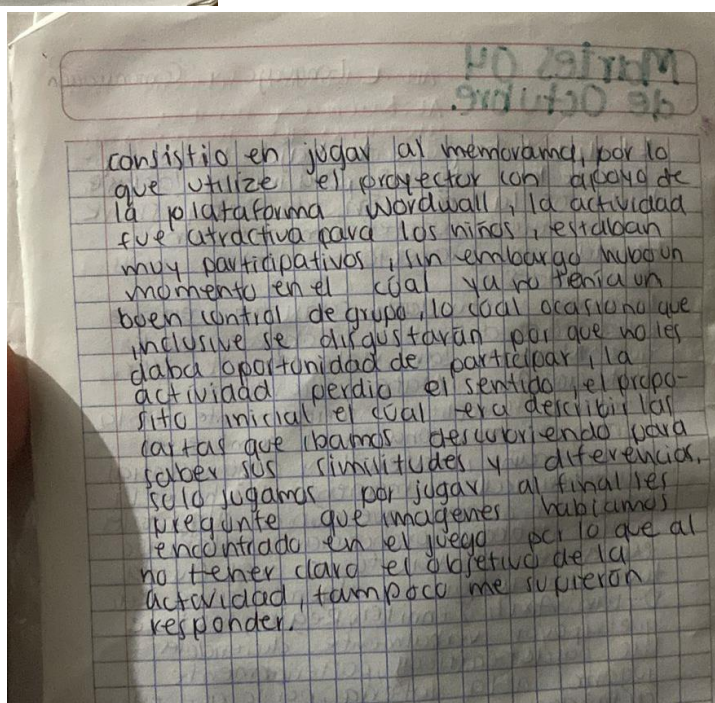 Martes 04
de Octubre.
consistio en jugar al memorama, por lo
que utilize el proyector con apoyo de
la plataforma Wordwall, la actividad
fue atractiva para los niños, estaban
muy participativos, sin embargo hubo un
momento en el cúal ya no tenía un
buen control de grupo, lo cúal ocasiono que
inclusive se disgustaran por que no les
daba oportunidad de participar, la
actividad perdio el sentido, el propo-
sito inicial el cúal era describir las
cartas que ibamos descubriendo para
saber sus similitudes y diferencias,
solo jugamos por jugar al final les
pregunte que imagenes habiamos
encontrado en el juego por lo que al
no tener claro el objetivo de la
actividad, tampoco me supieron
responder.